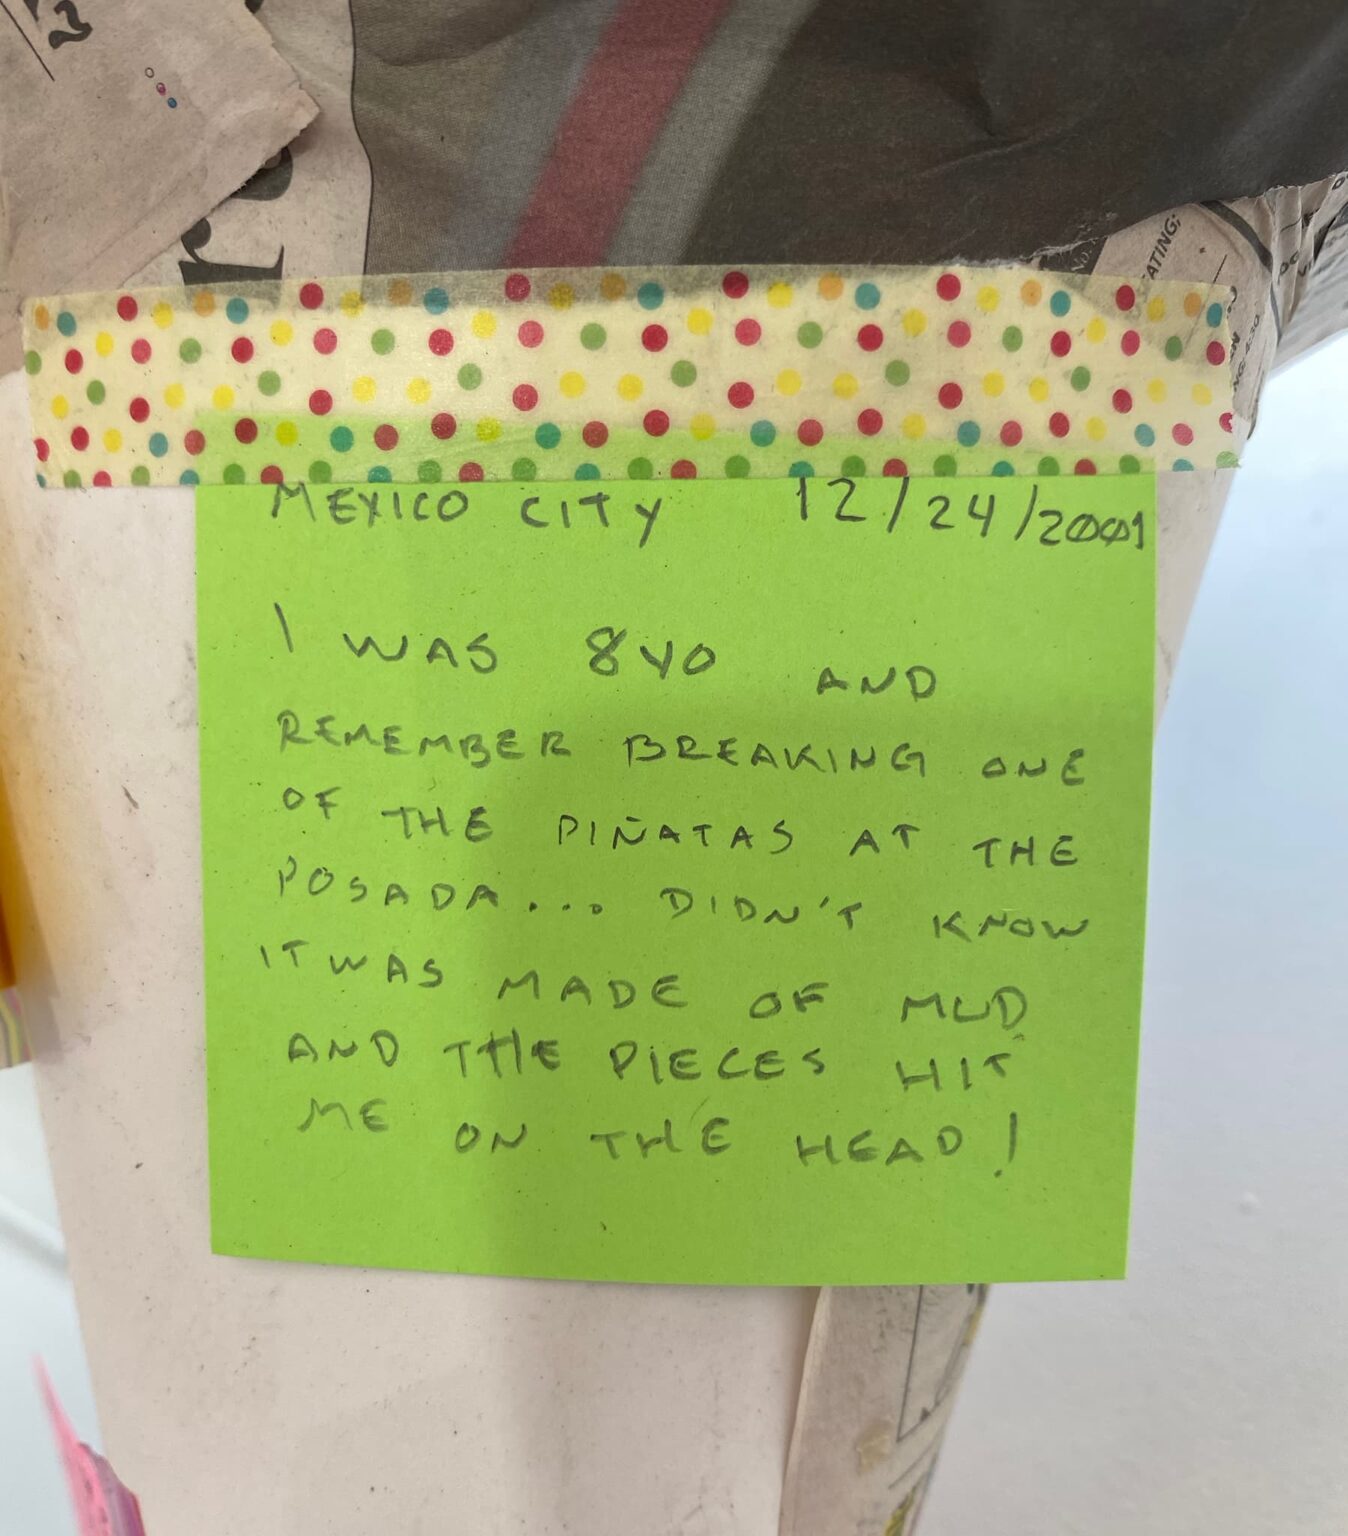 MEXICO CITY 12/24/2001
I WAS 8YO AND
REMEMBER BREAKING ONE
OF THE PIÑATAS AT THE
POSADA... DIDN'T KNOW
IT WAS MADE OF MUD
AND THE PIECES HIT
ME ON THE HEAD!